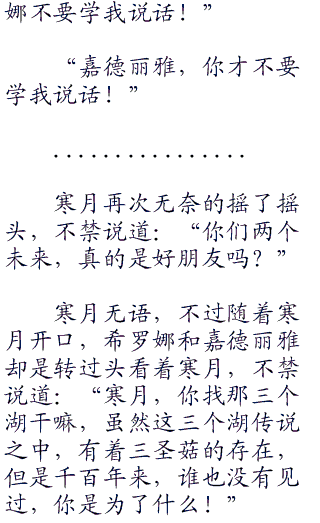 娜不要学我说话！”
“嘉德丽雅，你才不要
学我说话！”
................
寒月再次无奈的摇了摇
头，不禁说道：“你们两个
未来，真的是好朋友吗？”
寒月无语，不过随着寒
月开口，希罗娜和嘉德丽雅
却是转过头看着寒月，不禁
说道：“寒月，你找那三个
湖干嘛，虽然这三个湖传说
之中，有着三圣菇的存在，
但是千百年来，谁也没有见
过，你是为了什么！”